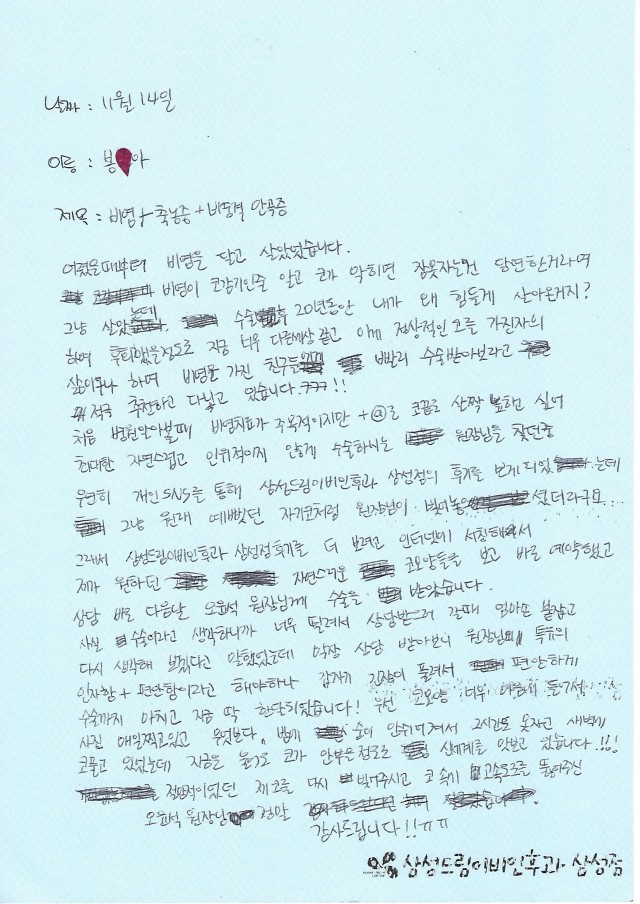 날짜 : 11월 14일
이름 : 봉 아
제목 : 비염 + 축농증 + 비중격 만곡증
어렸을때부터 비염을 달고 살았었습니다.
비염이 코감기인줄 알고 코가 막히면 잠못자는건 당연한거라며
그냥 살았는데 수술후 20년동안 내가 왜 힘들게 살아온거지?
하며 후회했을정도로 지금 너무 다른세상 같고 이게 정상적인 코를 가진자의
삶이구나 하며 비염을 가진 친구들 빨리 수술받아보라고
적극 추천하고 다닐고 있습니다.ㅋㅋㅋ!!
처음 병원알아볼때 비염치료가 주목적이지만 +@로 코끝을 살짝 높혔 싶어
최대한 자연스럽고 인위적이지 않게 수술하시는 원장님을 찾던중
우연히 개인 SNS를 통해 삼성드림이비인후과 삼성점의 후기를 보게되었는데
그냥 원래 예뻤던 자기코처럼 원장님이 빚어놓으셨더라구요...
그래서 삼성드림이비인후과 삼성점후기를 더 보려고 인터넷에 서칭해서
제가 원하던 자연스러운 코모양들을 보고 바로 예약했고
상담 바로 다음날 오윤석 원장님께 수술을 받았습니다.
사실 수술이라고 생각하니까 너무 떨려서 상담받으러 갈때 엄마손 붙잡고
다시 생각해 보겠다고 말했었는데 막상 상담 받아보니 원장님 특유의
인자함 + 편안함이라고 해야하나 갑자기 긴장이 풀려서 편안하게
수술까지 마치고 지금 딱 한달되었습니다! 우선 코모양 너무 마음에 들구서
사진 매일찍고있고 무엇보다 밤에 숨이 안쉬어져서 2시간도 못자고 새벽에
코풀고 있었는데 지금은 놀기도 코가 안부은정도로 신세계를 맛보고 있습니다!!!
절망적이었던 제코를 다시 빚어주시고 코 속까지 고속도로를 뚫어주신
오윤석 원장님 정말
감사드립니다!!ㅠㅠ
삼성드림이비인후과 삼성점